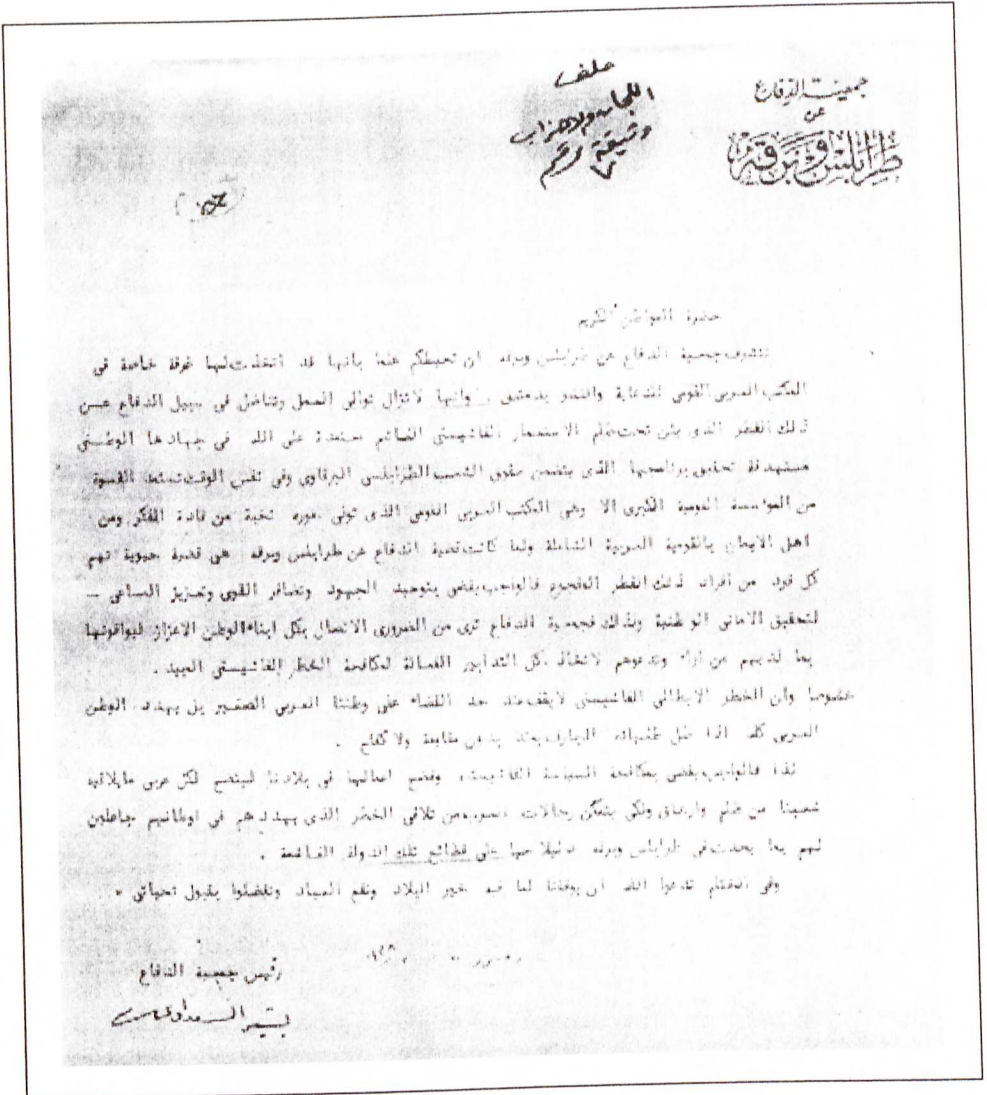 جمعية الدفاع
عن
طرابلس وبرقة
ملف
اللجان والاحزاب
وثيقة رقم
حضرة المواطن الكريم
تتشرف جمعية الدفاع عن طرابلس وبرقه ان تحيطكم علما بانها قد اتخذت لها غرفة خاصة في
المكتب العربي القومي للدعاية والنشر بدمشق . وانها لاتزال توالي العمل وتناضل في سبيل الدفاع عن
ذلك القطر الذي يئن تحت ظلم الاستعمار الفاشيستي الغاشم معتمدة على الله في جهادها الوطني
مستهدفة تحقيق برنامجها الذي يتضمن حقوق الشعب الطرابلسي البرقاوي وفي نفس الوقت تستمد القوة
من المؤسسة القومية الكبرى الا وهي المكتب العربي القومي الذي تولى اموره نخبة من قادة الفكر ومن
اهل الايمان بالقومية العربية الشاملة ولما كانت قضية الدفاع عن طرابلس وبرقه هي قضية حيوية تهم
كل فرد من افراد ذلك القطر المفجوع فالواجب يقضي بتوحيد الجهود وتضافر القوى وتعزيز المساعي –
لتحقيق الاماني الوطنية وبذلك فجمعية الدفاع ترى من الضروري الاتصال بكل ابناء الوطن الاعزاز ليوافونها
بما لديهم من اراء وتدعوهم لاتخاذ كل التدابير الفعالة لمكافحة الخطر الفاشيستي المبيد .
خصوصا وان الخطر الايطالي الفاشيستي لايقف عند حد القضاء على وطننا العربي الصغير بل يهدد الوطن
العربي كله اذا ظل طغيانه الجارف يمتد بدون مقاومة ولا كفاح .
لذا فالواجب يقضي بمكافحة السياسة الفاشيمة، وفضح اعمالها في بلادنا ليتضح لكل عربي مايلاقيه
شعبنا من ظلم وارهاق ولكي يتمكن رجالات العرب من تلافي الخطر الذي يهددهم في اوطانهم جاعلين
لهم بما يحدث في طرابلس وبرقه دليلا حيا على فظائع تلك الدولة الغاشمة .
وفي الختام ندعوا الله ان يوفقنا لما فيه خير البلاد ونفع العباد وتفضلوا بقبول تحياتي .
رئيس جمعية الدفاع
بشير السعداوي